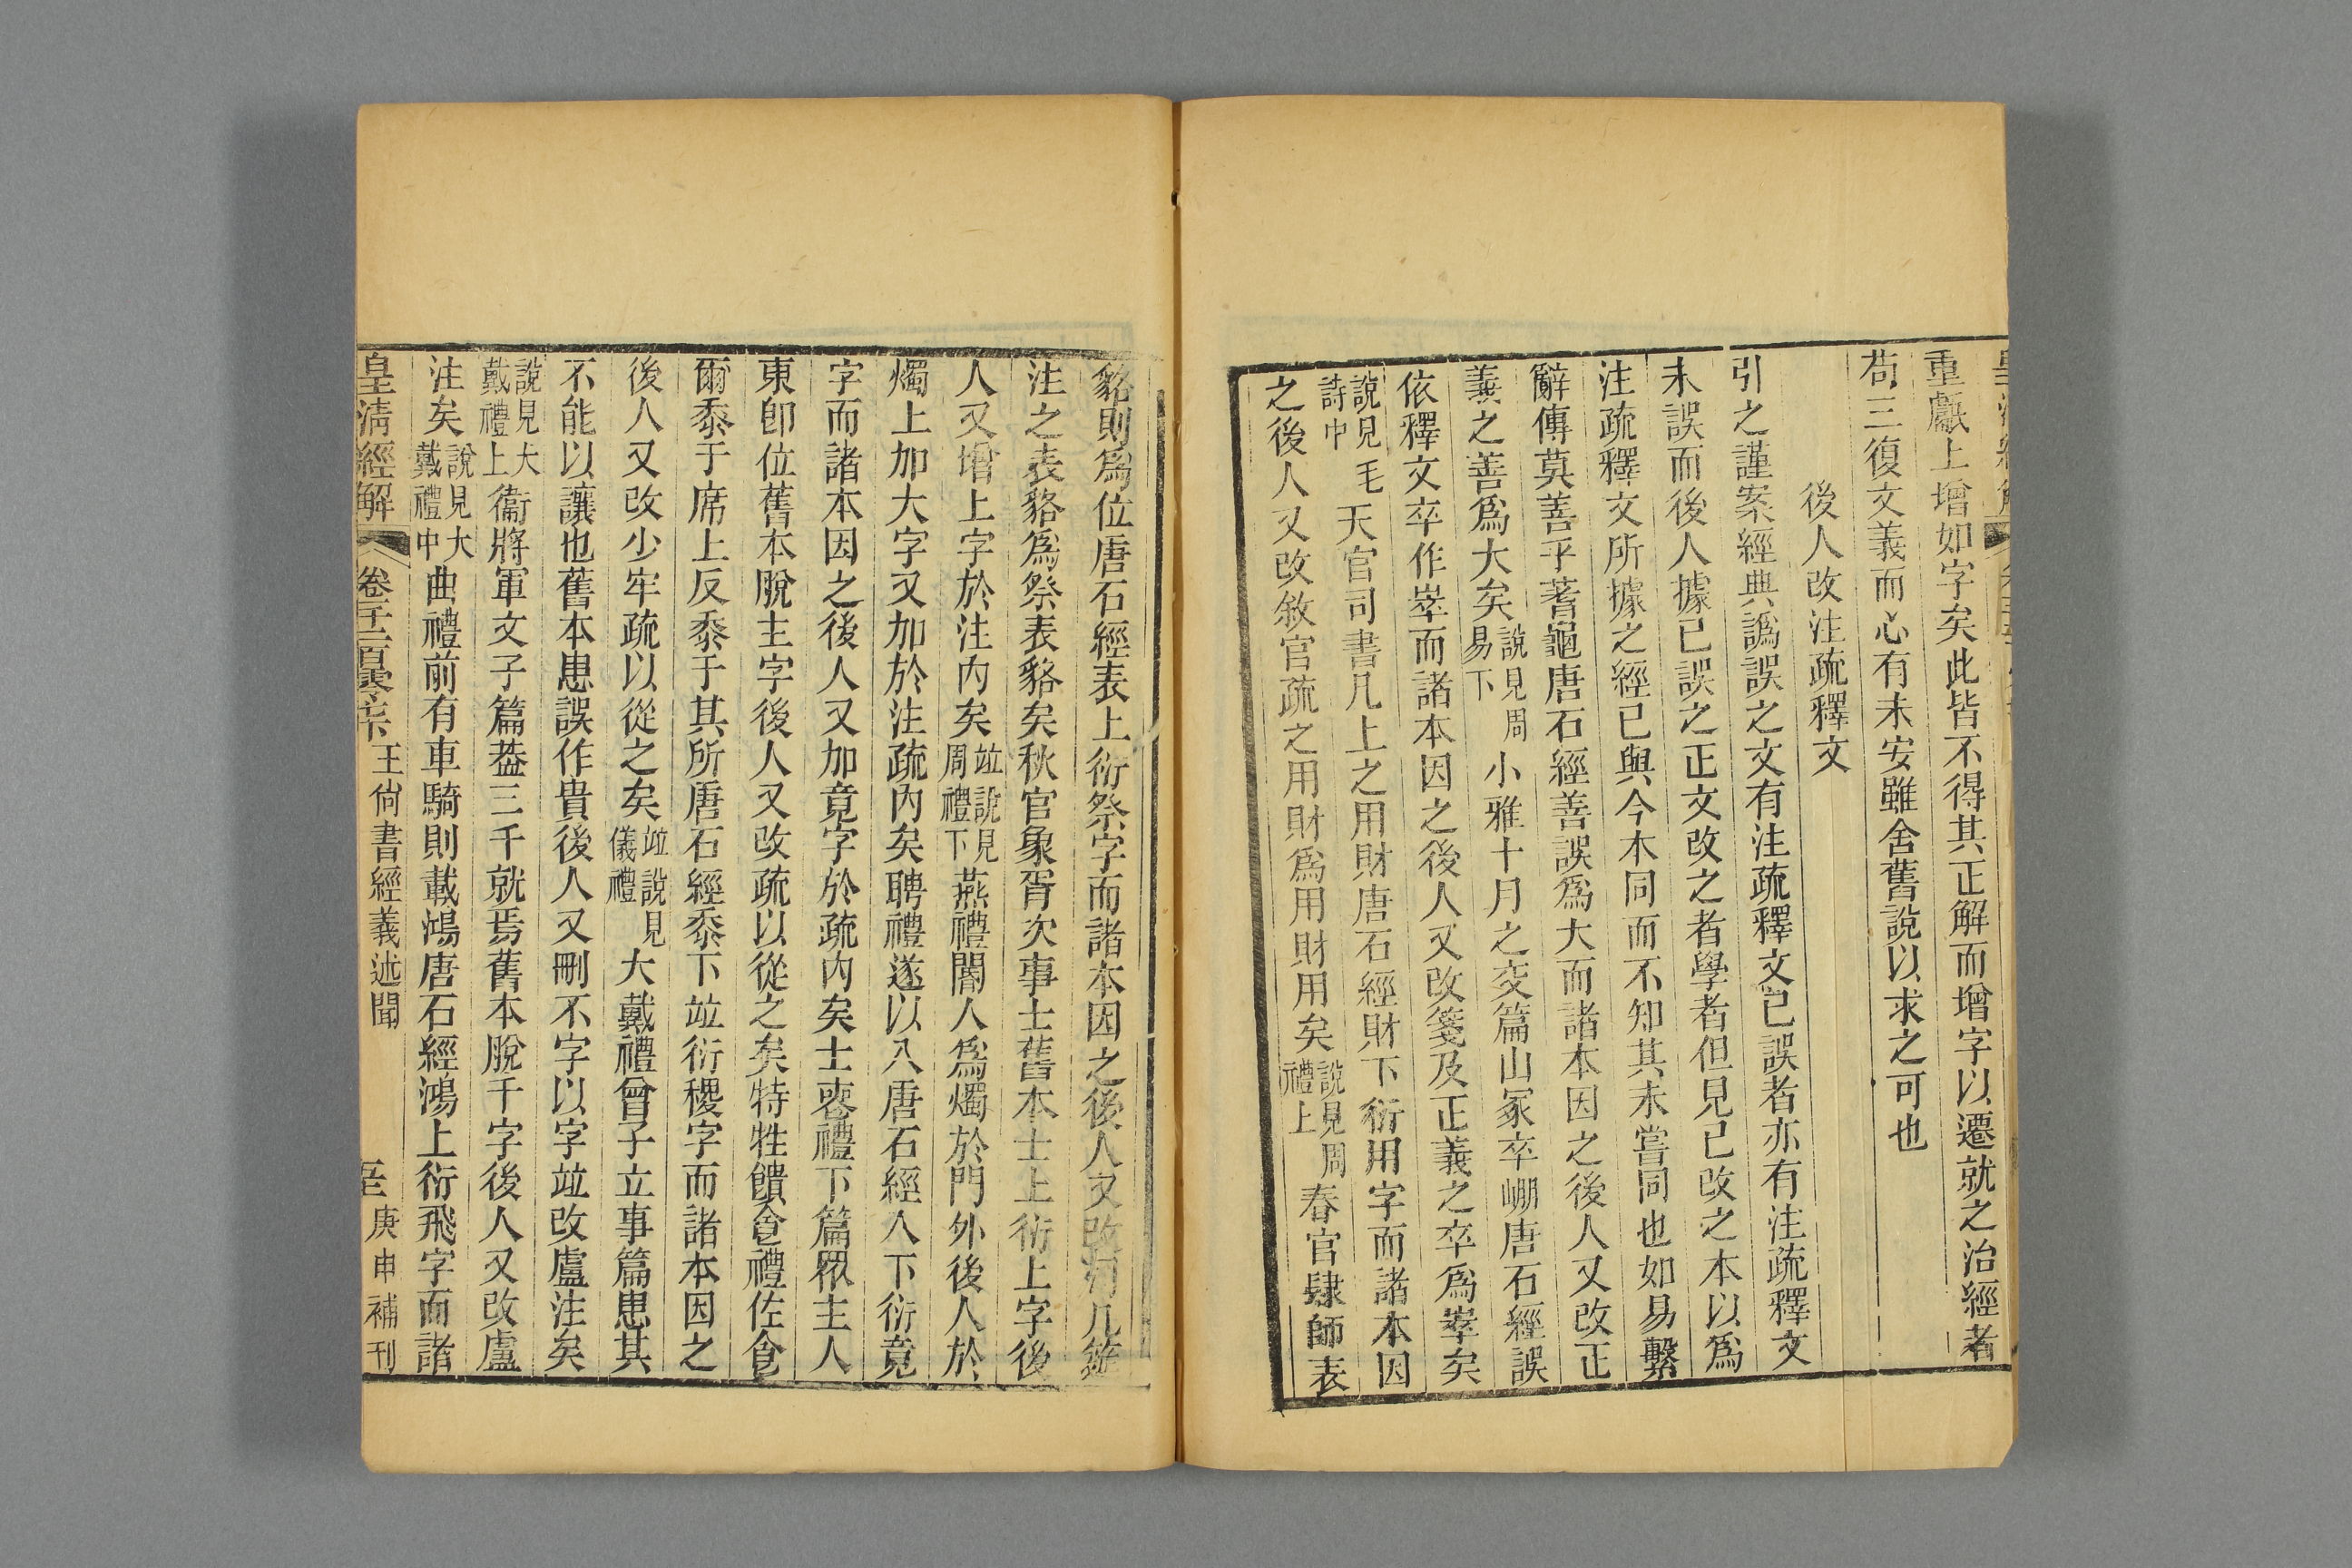 重獻上增如字矣此皆不得其正解而增字以遷就之治經者
苟三復文義而心有未安雖舍舊說以求之可也
後人改注疏釋文
引之謹案經典譌誤之文有注疏釋文已誤者亦有注疏釋文
未誤而後人據已誤之正文改之者學者但見已改之本以爲
注疏釋文所據之經已與今本同而不知其未嘗同也如易繫
辭傳莫善乎蓍龜唐石經善誤爲大而諸本因之後人又改正
義之善爲大矣說見周易下小雅十月之交篇山冢卒崩唐石經誤
依釋文卒作崒而諸本因之後人又改箋及正義之卒爲崒矣
說見毛詩中天官司書凡上之用財唐石經財下衍用字而諸本因
之後人又改敘官疏之用財爲用財用矣說見周禮上春官肆師表
貉則爲位唐石經表上衍祭字而諸本因之後人又改河凡筵
注之表貉爲祭表貉矣秋官象胥次事士舊本士上衍上字後
人又增上字於注內矣竝說見周禮下燕禮閽人爲燭於門外後人於
燭上加大字又加於注疏內矣聘禮遂以入唐石經入下衍竟
字而諸本因之後人又加竟字於疏內矣士喪禮下篇眾主人
東卽位舊本脫主字後人又改疏以從之矣特牲饋食禮佐食
爾黍于席上反黍于其所唐石經黍下竝衍稷字而諸本因之
後人又改少牢疏以從之矣竝說見儀禮大戴禮曾子立事篇患其
不能以讓也舊本患誤作貴後人又刪不字以字竝改盧注矣
說見大戴禮上衞將軍文子篇葢三千就焉舊本脫千字後人又改盧
注矣說見大戴禮中曲禮前有車騎則載鴻唐石經鴻上衍飛字而諸
皇淸經解
王尙書經義述聞
庚申補刊